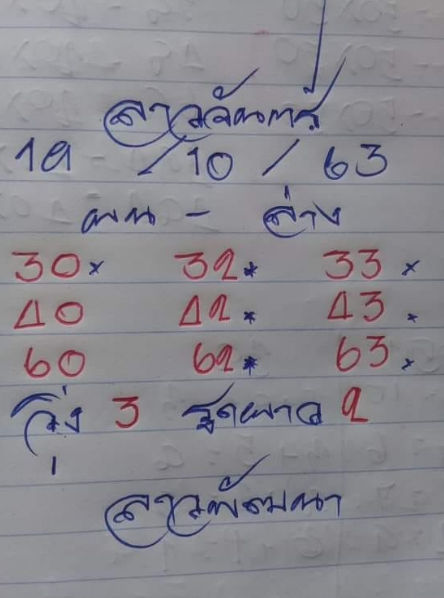 ลาวจันทร์
19 / 10 / 63
บน - ล่าง
30× 32* 33×
40 42* 43*
60 62* 63*
วิ่ง 3 รูดพาว 2
ลาวพัฒนา